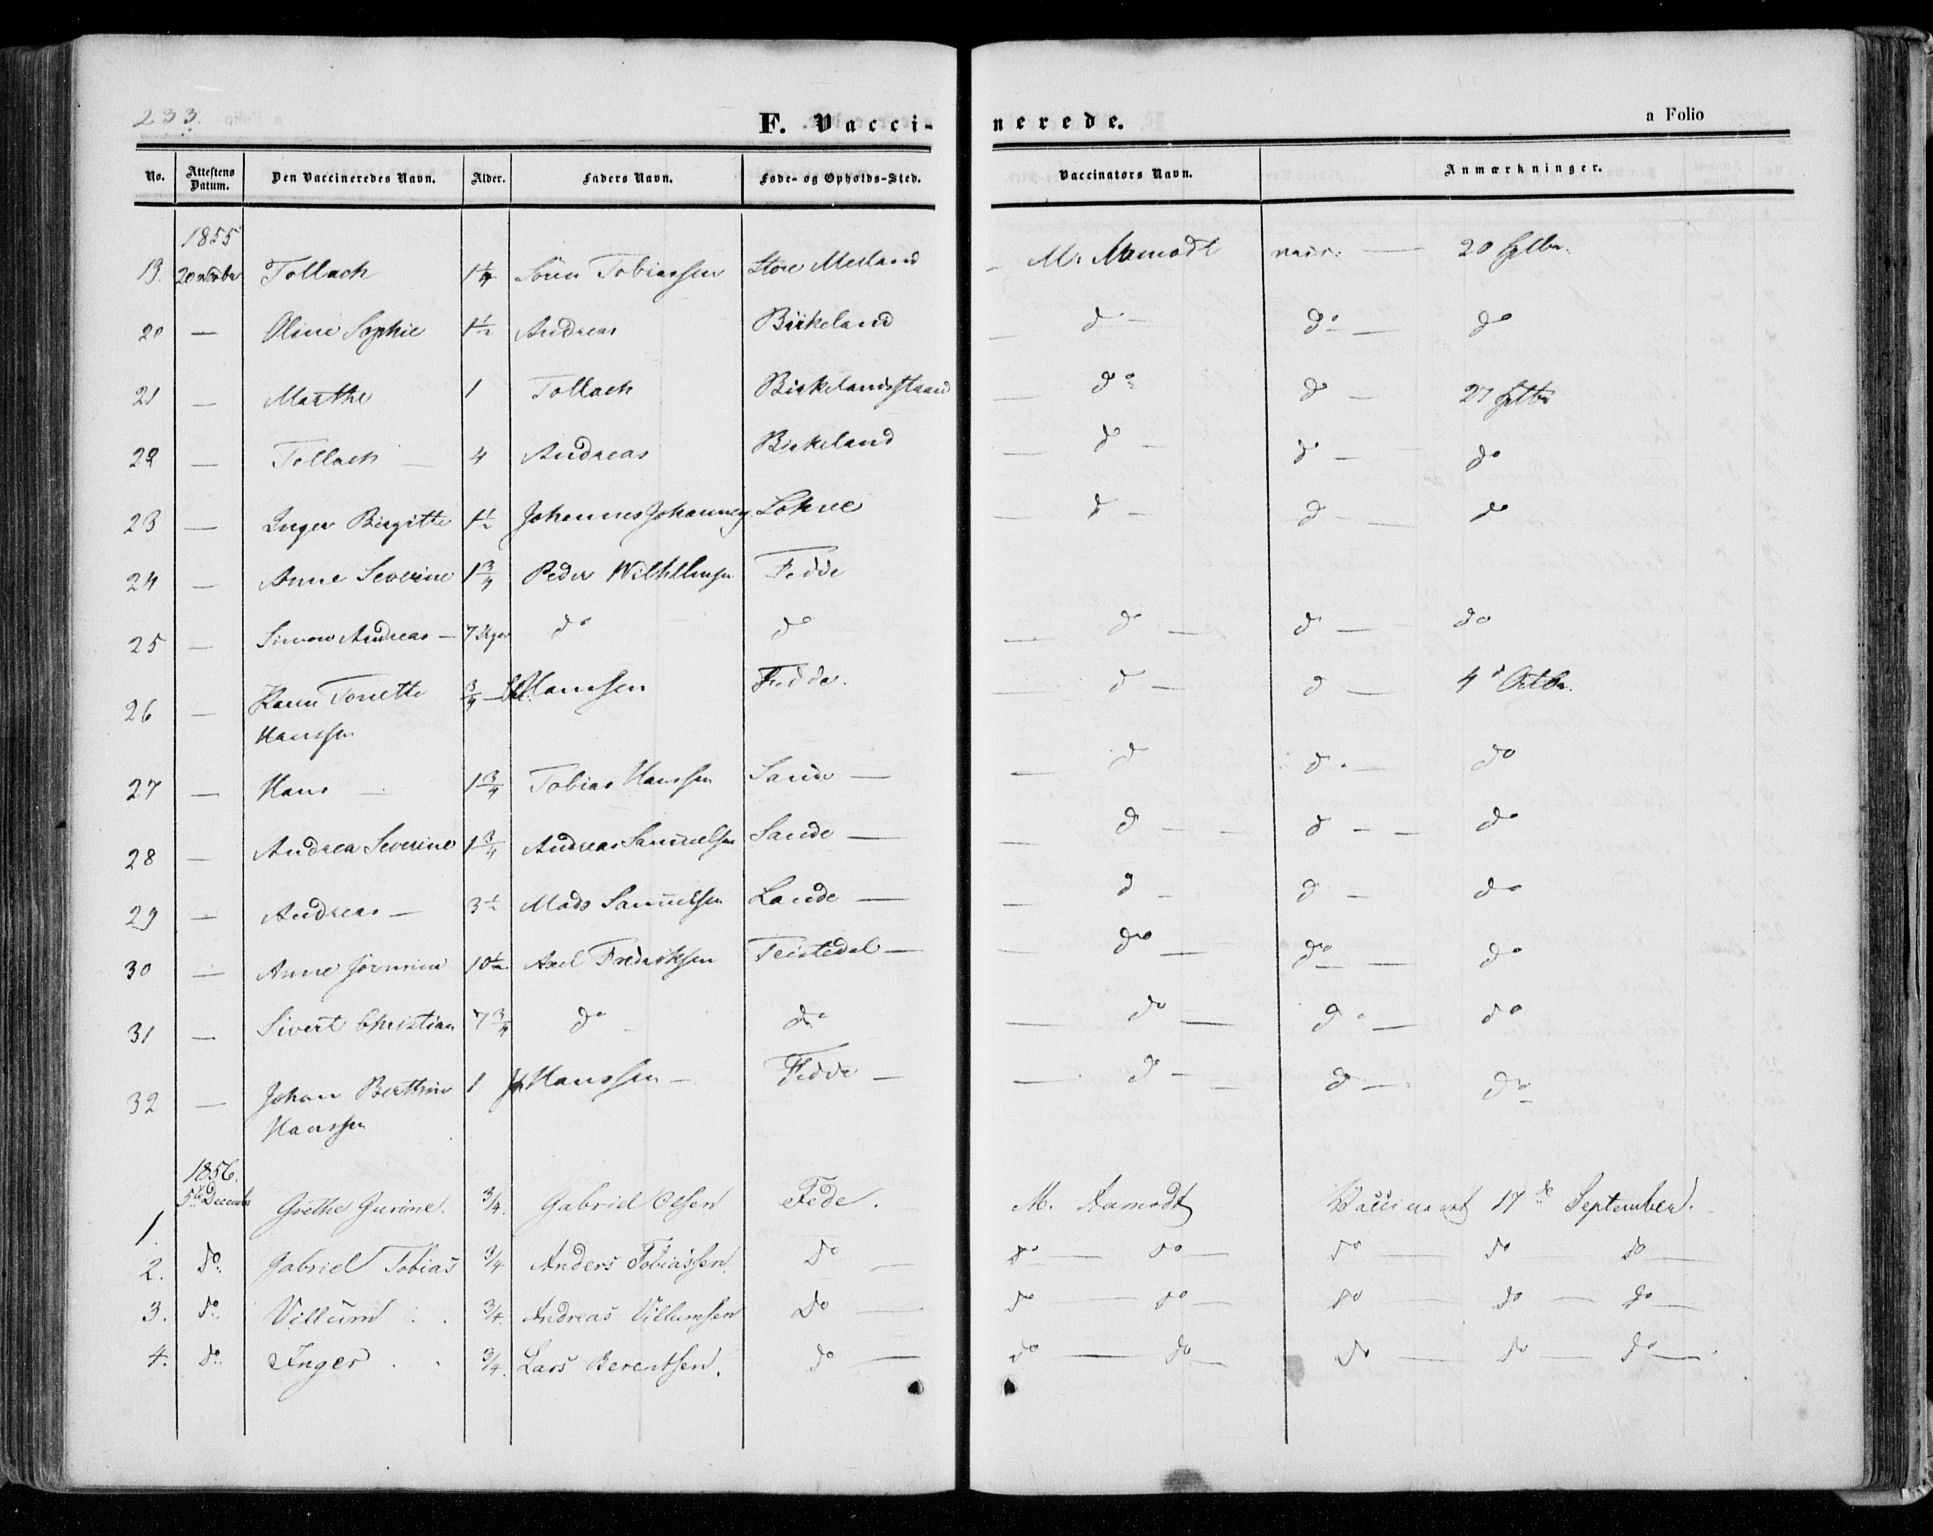 233.
F. Vacci-
nerede.
a Folio
No. Attestens Datum. Den Vaccineredes Navn. Alder. Faders Navn. Føde- og Opholds-Sted. Vaccinators Navn. Anmærkninger.
1855
19. 20 Tollach 1 1/4 Sören Tobiassen Store Meiland — M. Aamodt vacc. — 20 Septbr.
20 — Oline Sophie 1 1/2 Andreas Birkeland — do — do — do
21 — Marthe 1 Tollach Birkelandsstrand — do — do — 27 Septbr
22 — Tollach — 4 Andreas Birkeland — do — do — do
23 — Inger Birgitte 1 1/2 Johannes Lohne — do — do — do
24 — Anne Severine 1 3/4 Peder Fedde
25 — Simon Andreas — 7 do do — do — do — do
26 — Karen Tonette 3/4 — Hanssen Fedde. — do — do — 4de Octbr.
Hanssen
27 — Hans — 1 3/4 Tobias Hanssen Sande — — do do — do
28 — Andrea Severine 1 3/4 Andreas Samuelsen Sande — — do — — do — — do
29 — Andreas — 3 1/2 Mads Samuelsen Lande — — do — do — do
30 — Anne 10 1/2 Axel Fredriksen Feistedal — — do — do — do
31 — Sivert Christian 7 3/4 do do — do — do — do
32 — Johan 1 Hanssen — Fedde — — do — do — do
Hanssen
1856.
1. 5te Decembr Grethe Gurine. 3/4. Gabriel Olsen Fede. M. Aamodt Vaccineret 17de September.
2. do. Gabriel Tobias 3/4 Anders Tobiassen do — do — do — do — do do —
3. do. Villum . . 3/4. Andreas Villumsen do — do — do — do — do — do —
4. do. Inger . . 3/4. Lars Berentsen. do — do — do — do — do — do — .